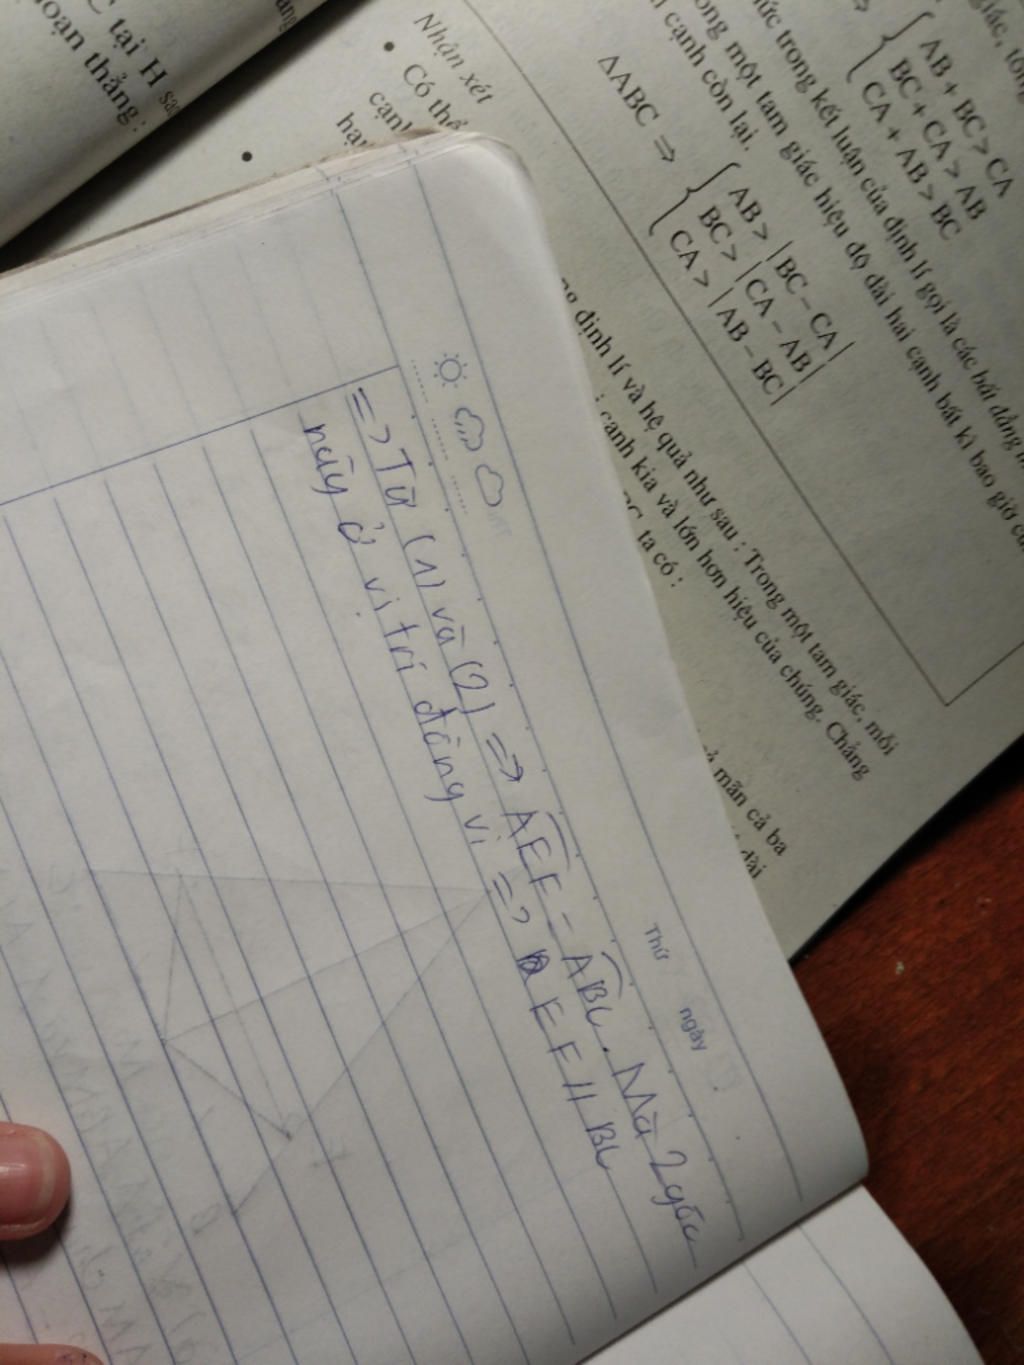 C tại H
oạn thẳng :
Nhận xét
• Có thể
cạnh
•
AB + BC > CA
BC + CA > AB
CA + AB > BC
ức trong kết luận của định lí gọi là các bất đẳng
ong một tam giác hiệu độ dài hai cạnh bất kì bao giờ
cạnh còn lại.
ΔABC ⇒
AB > |BC – CA|
BC > |CA – AB|
CA > |AB – BC|
định lí và hệ quả như sau : Trong một tam giác, mỗi
cạnh kia và lớn hơn hiệu của chúng. Chẳng
ta có :
mãn cả ba
dài
Thứ ngày
=> Từ (1) và (2) => AEF = ABC. Mà 2 góc
này ở vị trí đồng vị => EF // BC